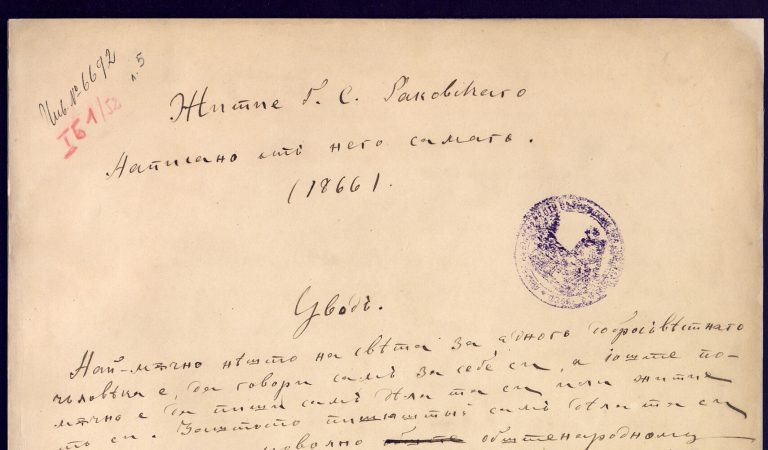 Инв. № 6692
л. 5
IБ 1/52
Житие Г. С. Раковскаго
Написано отъ него самагъ.
(1866).
Уводъ.
Най-мѫчно нѣшто на свѣта за едного добросъвѣстнаго
чьловѣка е, да говори самъ за себѣ си, а іоште по-
мѫчно е да пиши самъ дѣла та си или житие
тъ си. Заштото пишѫштый самъ дѣла та си
доволно обштенародному